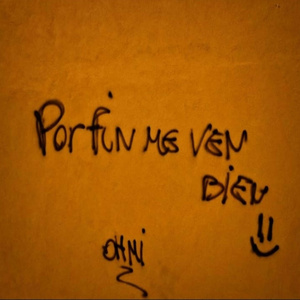 Porfin me ven
Bien
OHNI